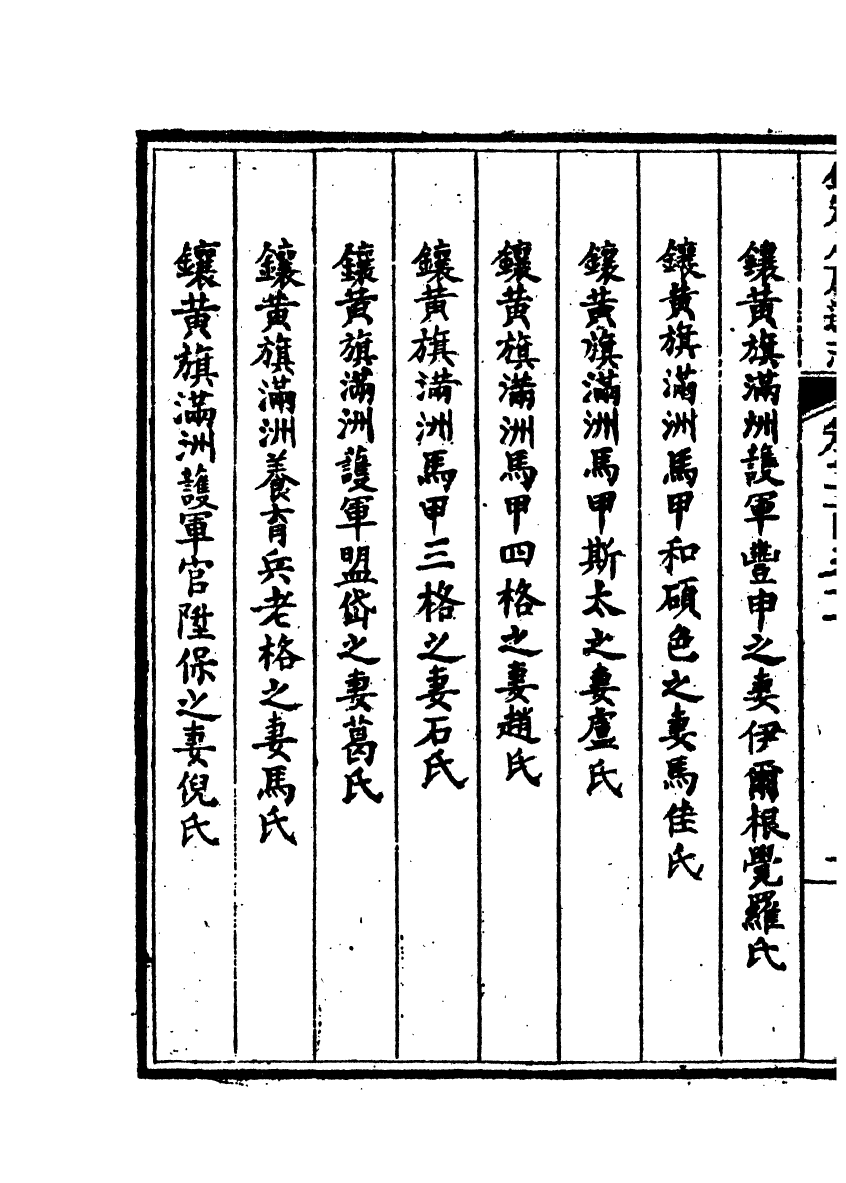 鑲黃旗滿洲護軍豐申之妻伊爾根覺羅氏
鑲黃旗滿洲馬甲和碩色之妻馬佳氏
鑲黃旗滿洲馬甲斯太之妻盧氏
鑲黃旗滿洲馬甲四格之妻趙氏
鑲黃旗滿洲馬甲三格之妻石氏
鑲黃旗滿洲護軍盟岱之妻葛氏
鑲黃旗滿洲養育兵老格之妻馬氏
鑲黃旗滿洲護軍官陞保之妻倪氏